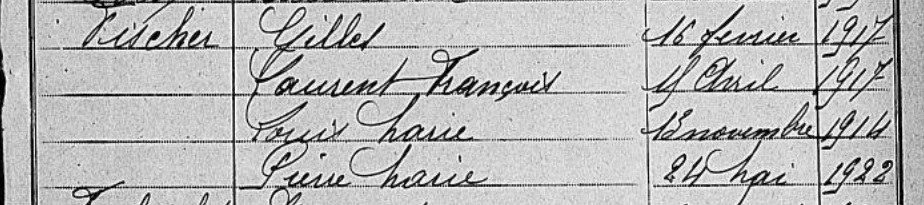 Fischer Gilles 16 fevrier 1917
Laurent François 15 Avril 1917
Louis Marie 13 novembre 1914
Pierre Marie 24 Mai 1922